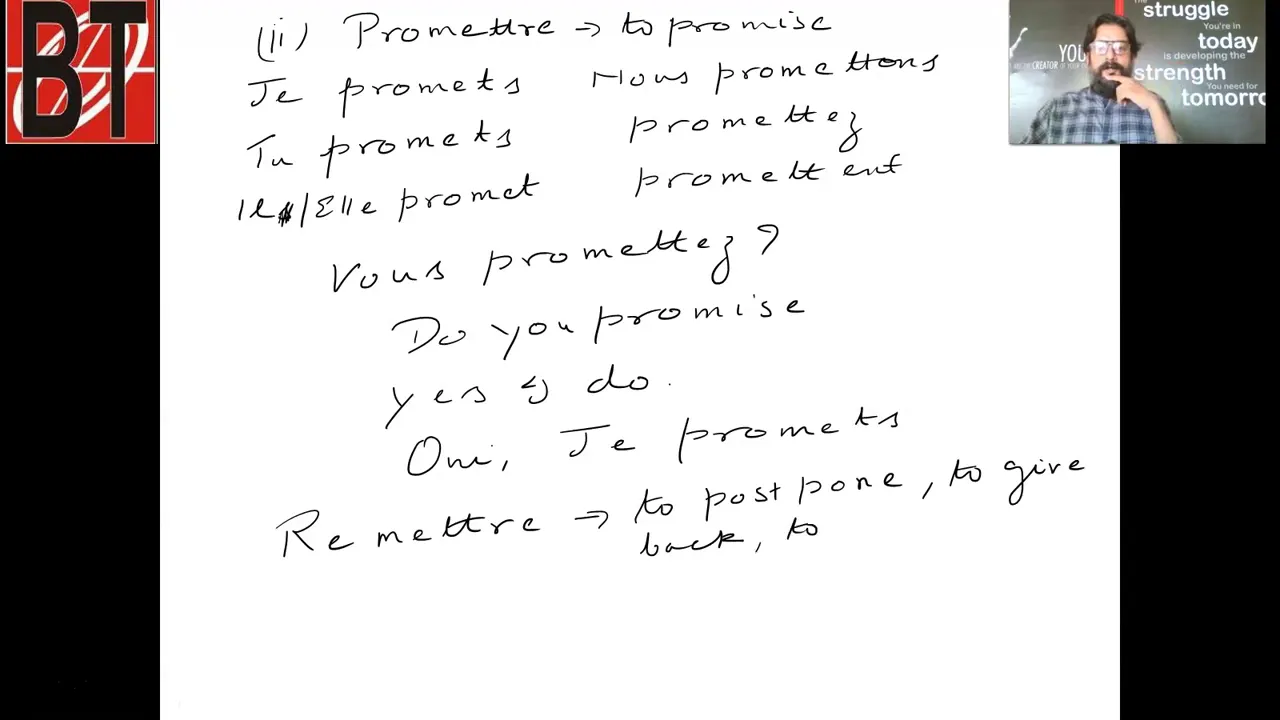 BT
(ii) Promettre → to promise
Je promets Nous promettons
Tu promets promettez
Il /Elle promet promettent
Vous promettez ?
Do you promise
yes I do.
Oui, Je promets
Remettre → to postpone, to give
back, to
The struggle
You're in
today
is developing the
strength
You need for
tomorro
YOU
CREATOR